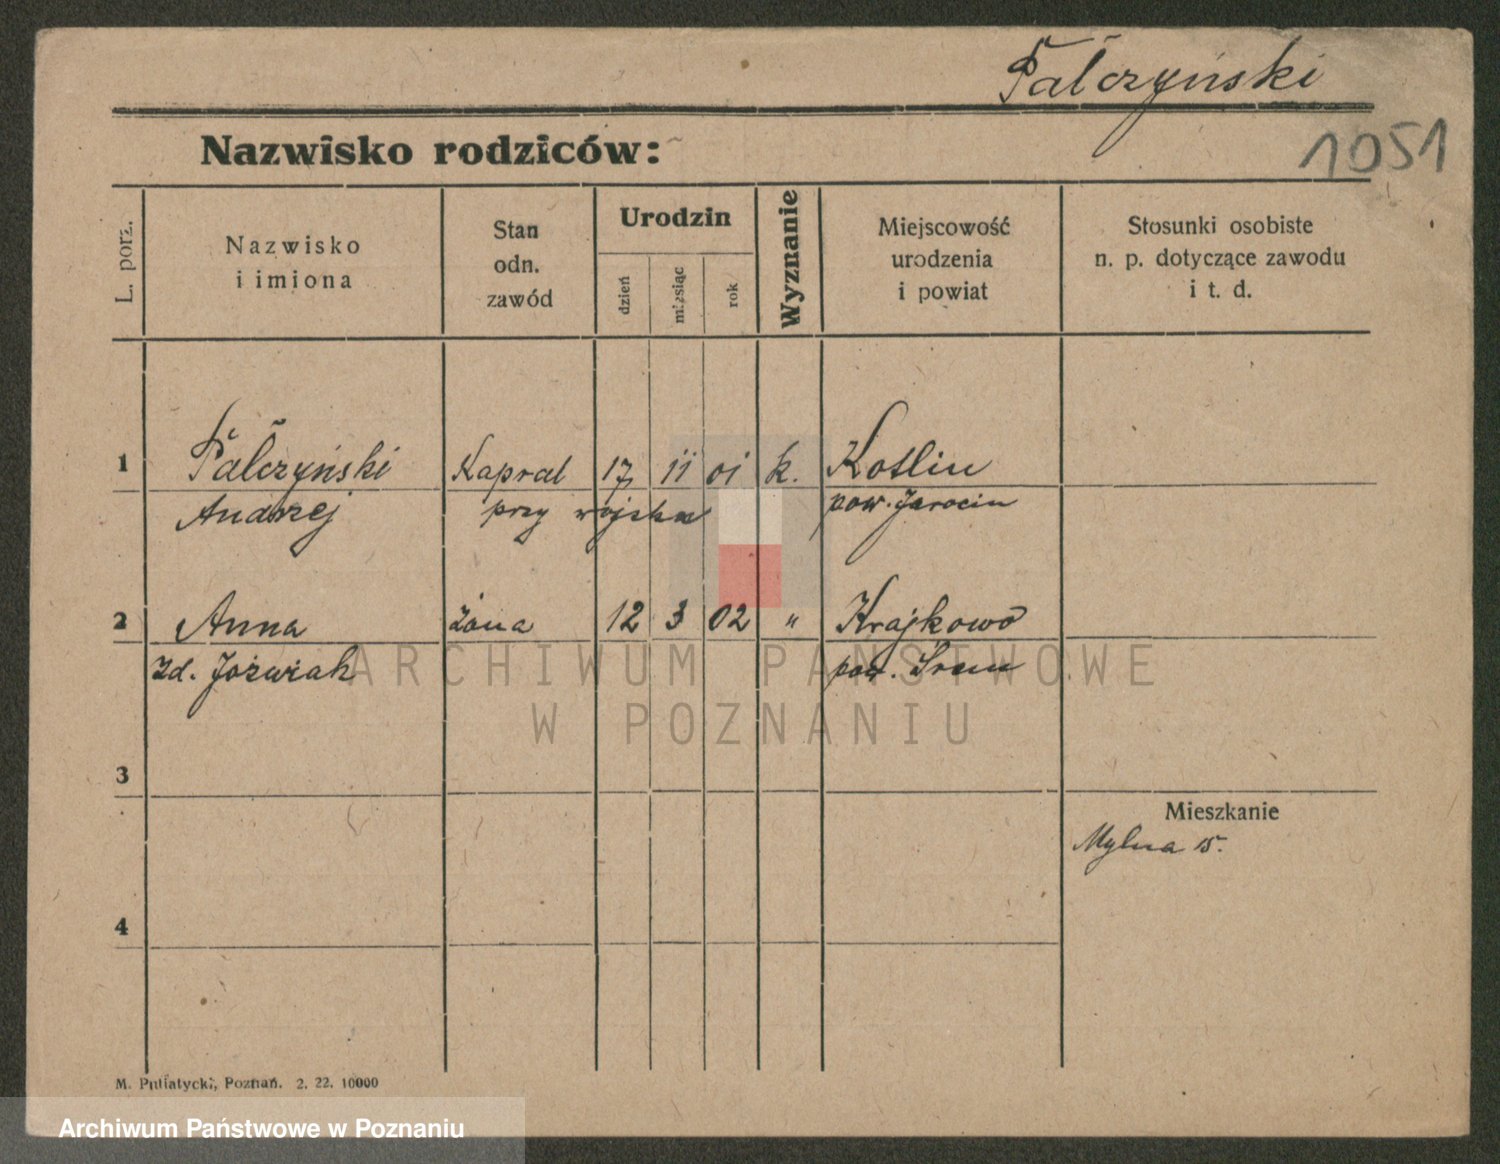 Pałczyński
1051
Nazwisko rodziców:
L. porz.
Nazwisko
i imiona
Stan
odn.
zawód
Urodzin
dzień
miesiąc
rok
Wyznanie
Miejscowość
urodzenia
i powiat
Stosunki osobiste
n. p. dotyczące zawodu
i t. d.
1 Pałczyński Kapral 17 11 01 k. Kotlin
Andrzej przy wojsku pow. Jarocin
2 Anna żona 12 3 02 " Krajkowo
zd. Jóżwiak pow. Śrem
ARCHIWUM PAŃSTWOWE
W POZNANIU
3
Mieszkanie
Mylna 15.
4
M. Putiatycki, Poznań. 2. 22. 10000
Archiwum Państwowe w Poznaniu